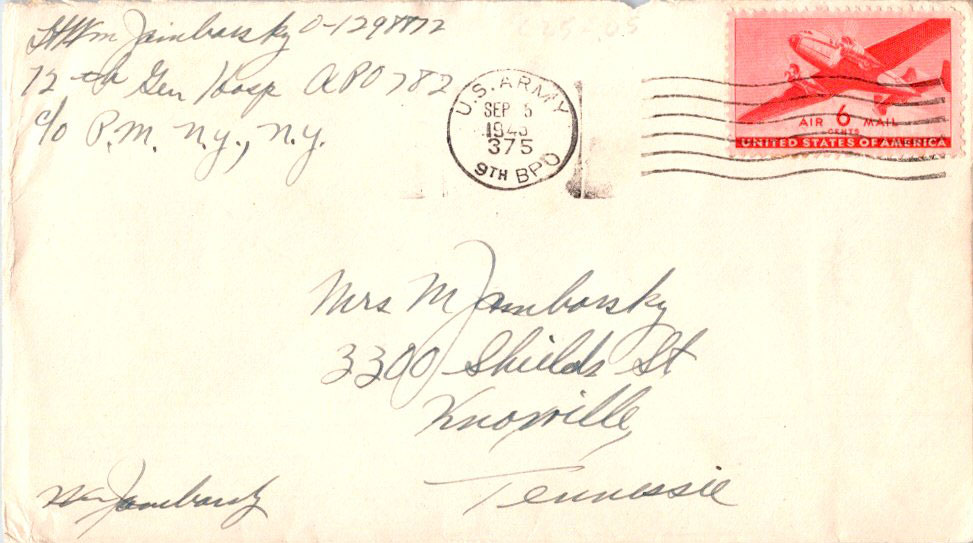 Lt Wm Jamborsky O-1298772
12th Gen Hosp APO 782
c/o P.M. N.Y., N.Y.
U.S. ARMY
SEP 5
1943
375
9TH BPO
AIR 6 MAIL
CENTS
UNITED STATES OF AMERICA
Mrs M Jamborsky
3300 Shields St
Knoxville,
Tennessie
Wm Jamborsky